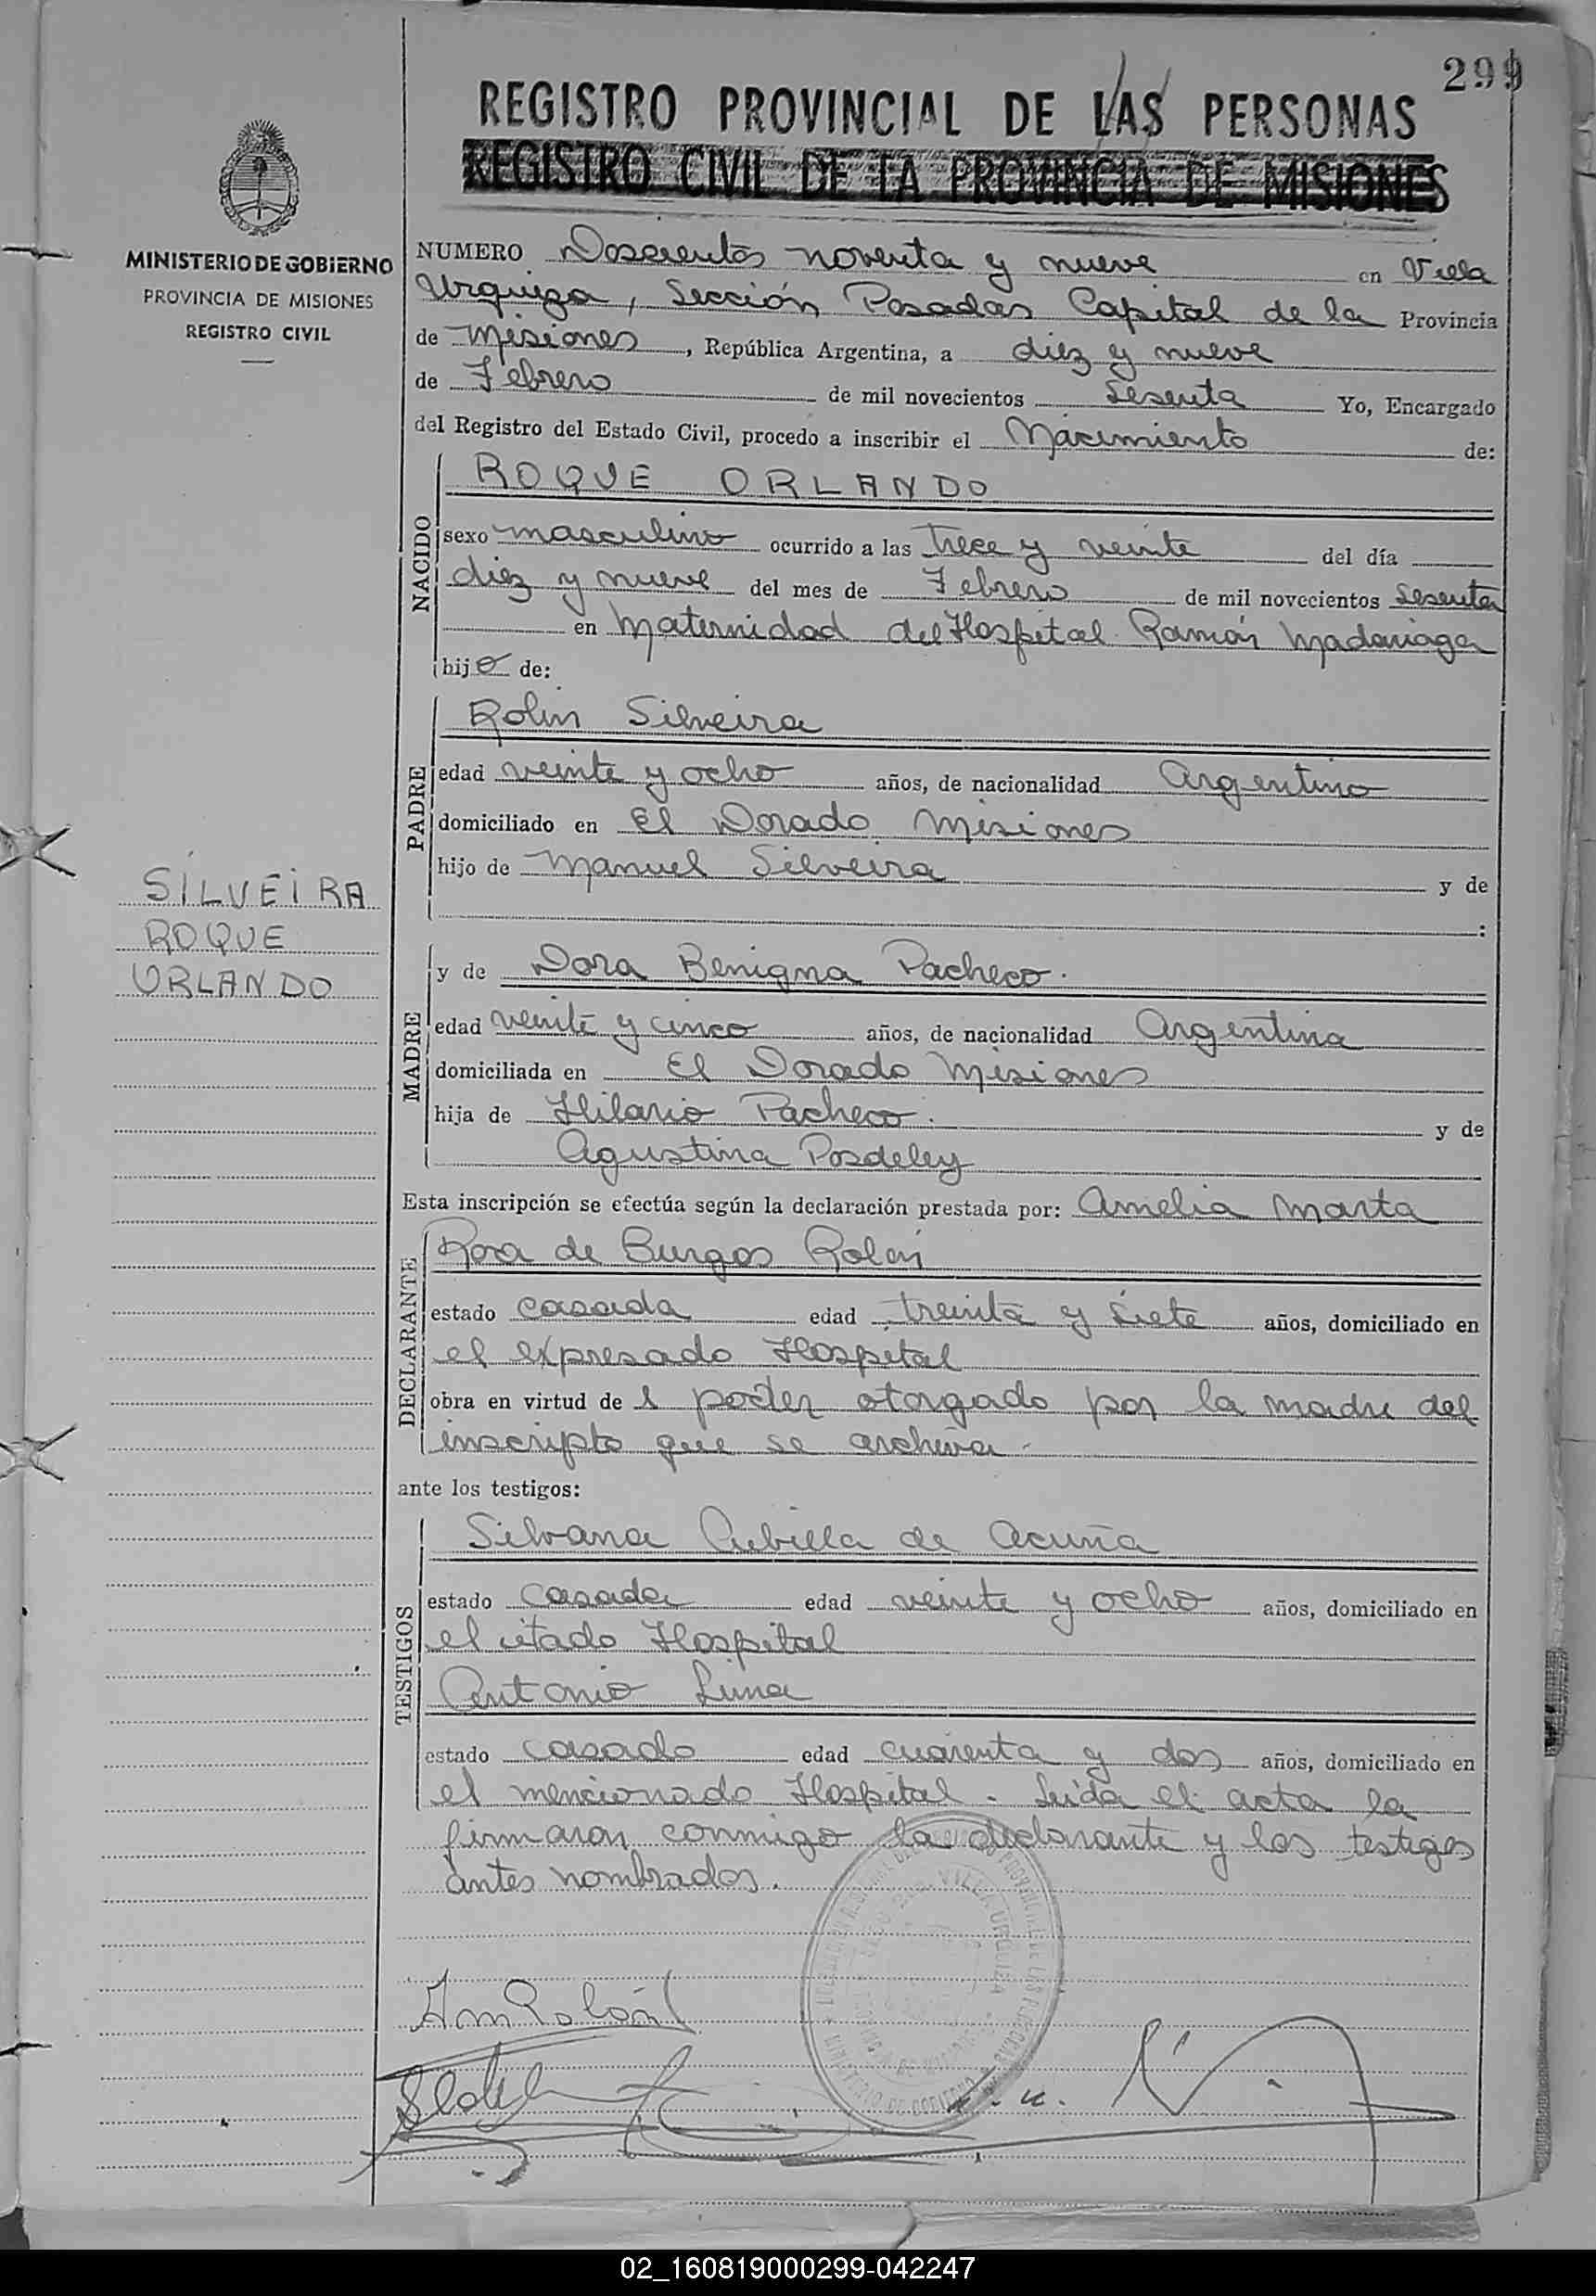 299
REGISTRO PROVINCIAL DE LAS PERSONAS
REGISTRO CIVIL DE LA PROVINCIA DE MISIONES
MINISTERIO DE GOBIERNO
PROVINCIA DE MISIONES
REGISTRO CIVIL
NUMERO Doscientos noventa y nueve en Villa
Urquiza, Sección Posadas Capital de la Provincia
de Misiones, República Argentina, a diez y nueve
de Febrero de mil novecientos Sesenta Yo, Encargado
del Registro del Estado Civil, procedo a inscribir el Nacimiento de:
NACIDO
ROQUE ORLANDO
sexo masculino ocurrido a las trece y veinte del día
diez y nueve del mes de Febrero de mil novecientos Sesenta
en Maternidad del Hospital Ramón Madariaga
hijo de:
PADRE
Rolin Silveira
edad veinte y ocho años, de nacionalidad Argentino
domiciliado en El Dorado Misiones
hijo de Manuel Silveira y de
SILVEIRA
ROQUE
ORLANDO
MADRE
y de Dora Benigna Pacheco.
edad veinte y cinco años, de nacionalidad Argentina
domiciliada en El Dorado Misiones
hija de Hilario Pacheco. y de
Agustina Posdeley
Esta inscripción se efectúa según la declaración prestada por: Amelia Marta
DECLARANTE
Rosa de Burgos Rolón
estado casada edad treinta y siete años, domiciliado en
el expresado Hospital
obra en virtud de l poder otorgado por la madre del
inscripto que se archiva.
ante los testigos:
TESTIGOS
Silvana Cubilla de Acuña
estado casada edad veinte y ocho años, domiciliado en
el citado Hospital
Antonio Luna
estado casado edad cuarenta y dos años, domiciliado en
el mencionado Hospital. Leída el acta la
firmaron conmigo la declarante y los testigos
antes nombrados.
VILLA URQUIZA
02_160819000299-042247